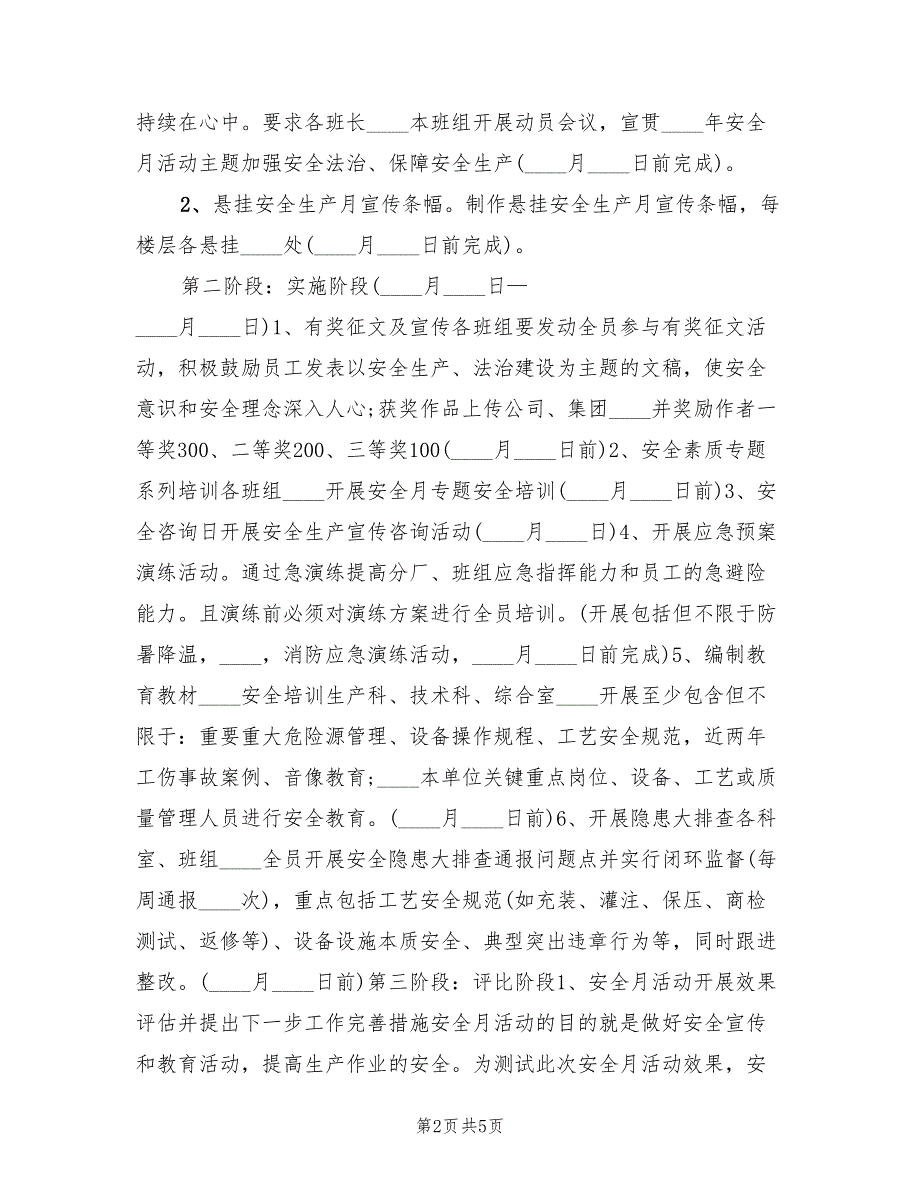 持续在心中。要求各班长____本班组开展动员会议，宣贯____年安全
月活动主题加强安全法治、保障安全生产(____月____日前完成)。
2、悬挂安全生产月宣传条幅。制作悬挂安全生产月宣传条幅，每
楼层各悬挂____处(____月____日前完成)。
第二阶段：实施阶段(____月____日—
____月____日)1、有奖征文及宣传各班组要发动全员参与有奖征文活
动，积极鼓励员工发表以安全生产、法治建设为主题的文稿，使安全
意识和安全理念深入人心;获奖作品上传公司、集团____并奖励作者一
等奖300、二等奖200、三等奖100(____月____日前)2、安全素质专题
系列培训各班组____开展安全月专题安全培训(____月____日前)3、安
全咨询日开展安全生产宣传咨询活动(____月____日)4、开展应急预案
演练活动。通过急演练提高分厂、班组应急指挥能力和员工的急避险
能力。且演练前必须对演练方案进行全员培训。(开展包括但不限于防
暑降温，____，消防应急演练活动，____月____日前完成)5、编制教
育教材____安全培训生产科、技术科、综合室____开展至少包含但不
限于：重要重大危险源管理、设备操作规程、工艺安全规范，近两年
工伤事故案例、音像教育;____本单位关键重点岗位、设备、工艺或质
量管理人员进行安全教育。(____月____日前)6、开展隐患大排查各科
室、班组____全员开展安全隐患大排查通报问题点并实行闭环监督(每
周通报____次)，重点包括工艺安全规范(如充装、灌注、保压、商检
测试、返修等)、设备设施本质安全、典型突出违章行为等，同时跟进
整改。(____月____日前)第三阶段：评比阶段1、安全月活动开展效果
评估并提出下一步工作完善措施安全月活动的目的就是做好安全宣传
和教育活动，提高生产作业的安全。为测试此次安全月活动效果，安
第2页共5页